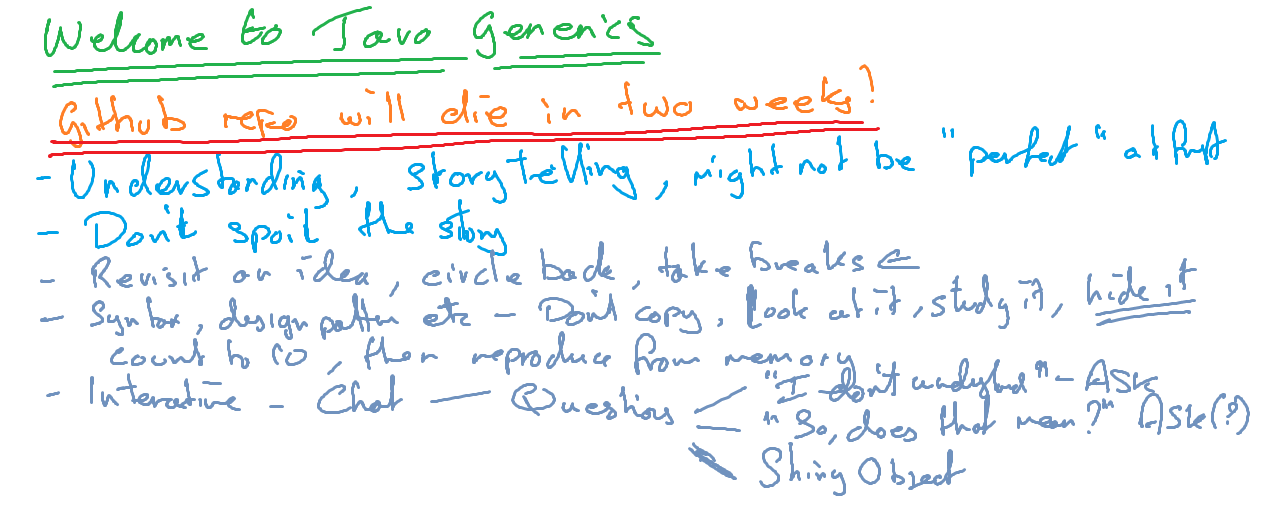 Welcome to Java Generics
Github repo will die in two weeks!
- Understanding, story telling, might not be "perfect" at first
- Don't spoil the story
- Revisit an idea, circle back, take breaks ←
- Syntax, design pattern etc - Don't copy, Look at it, study it, hide it
count to 10, then reproduce from memory
- Interactive - Chat - Questions
"I don't understand" - ASK
"So, does that mean?" ASK(?)
Shiny Object